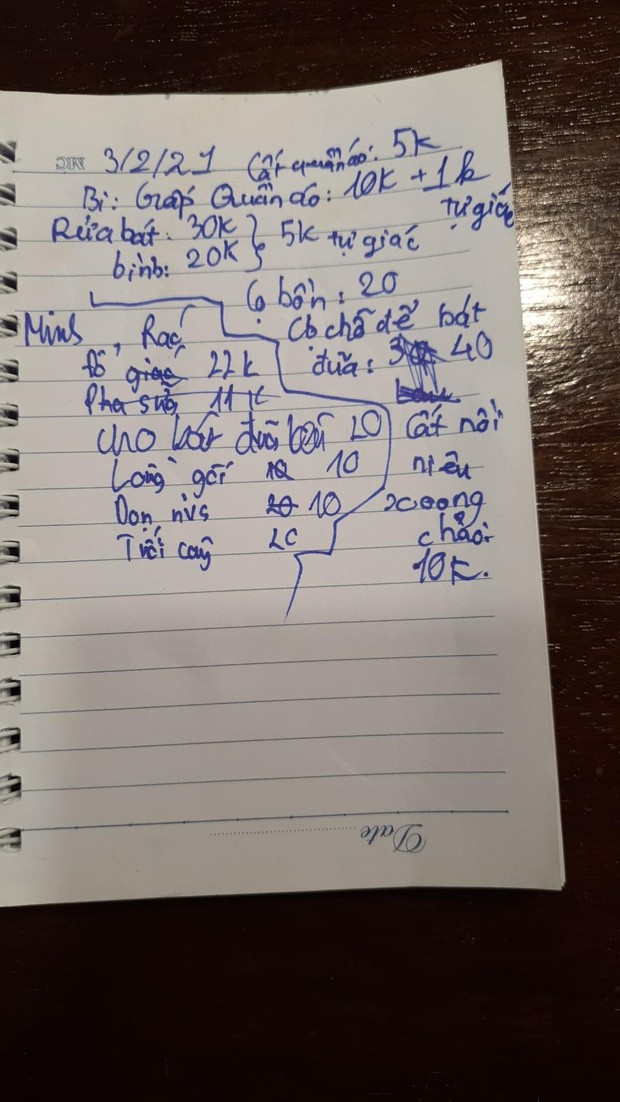 MC
3/2/21 Cất quần áo: 5k
Bi: Gấp Quần áo: 10k + 1k
tự giác
Rửa bát: 30k } 5k tự giác
bình: 20k
Cọ bồn: 20
Minh
Cọ chỗ để bát
đũa: 40
Đổ Rác 22k
Pha sữa 11k
cho bát đũa 20
Lồng gối 10
Dọn nvs 10
Tưới cây 20
Cất nồi
niêu
xoong
chảo:
10k.
Date